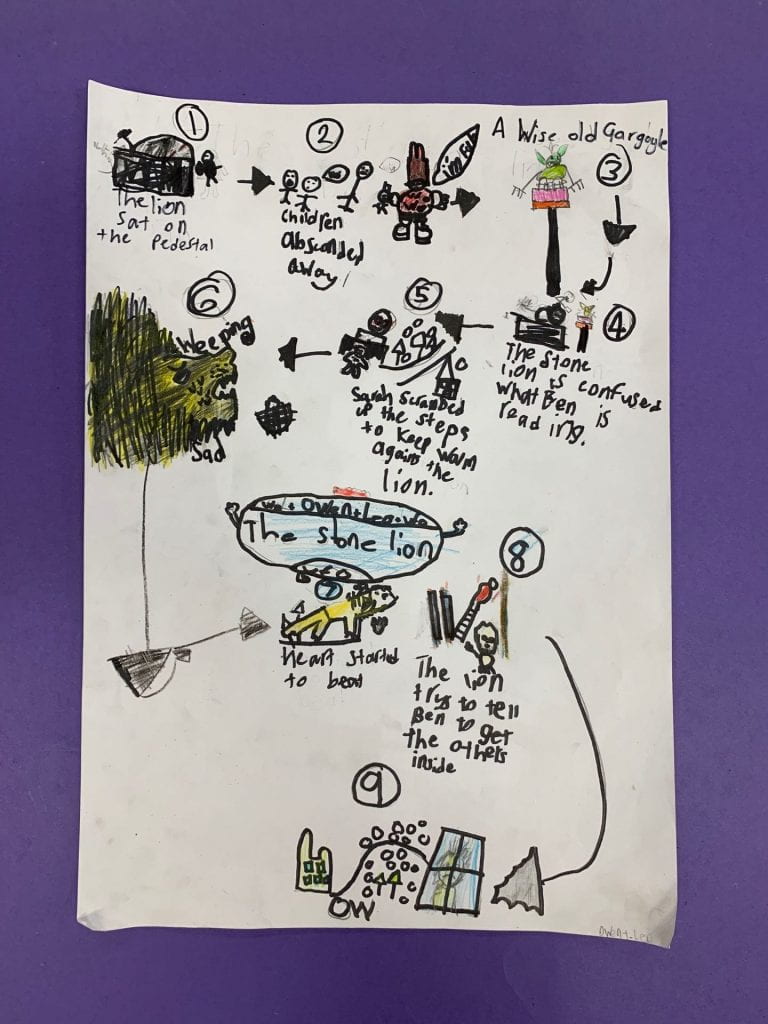 1
The lion
sat on
the pedestal
2
children
absconded
away!
A Wise old Gargoyle
3
4
The stone
lion is confused
what Ben is
reading.
5
Sarah scrambled
up the steps
to keep warm
against the
lion.
6
Weeping
Sad
The stone lion
7
Heart started
to beat
8
The lion
trys to tell
Ben to get
the others
inside
9
OW